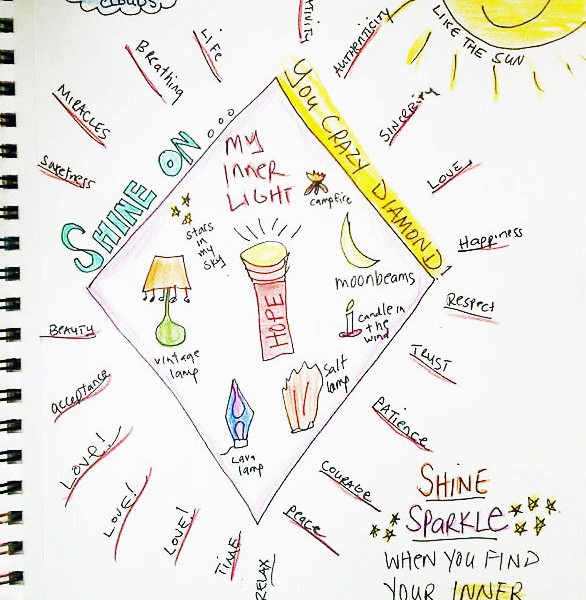 CLOUDS
LIKE THE SUN
AUTHENTICITY
SINCERITY
LOVE
Happiness
Respect
TRUST
PATIENCE
COURAGE
PEACE
RELAX
TIME
LOVE!
LOVE!
LOVE!
acceptance
BEAUTY
Sweetness
MIRACLES
Breathing
LIFE
SHINE ON...
YOU CRAZY DIAMOND!
MY
INNER
LIGHT
campfire
stars
in
my
sky
moonbeams
HOPE
candle in
the
wind
vintage
lamp
salt
lamp
Lava
lamp
SHINE
SPARKLE
WHEN YOU FIND
YOUR INNER